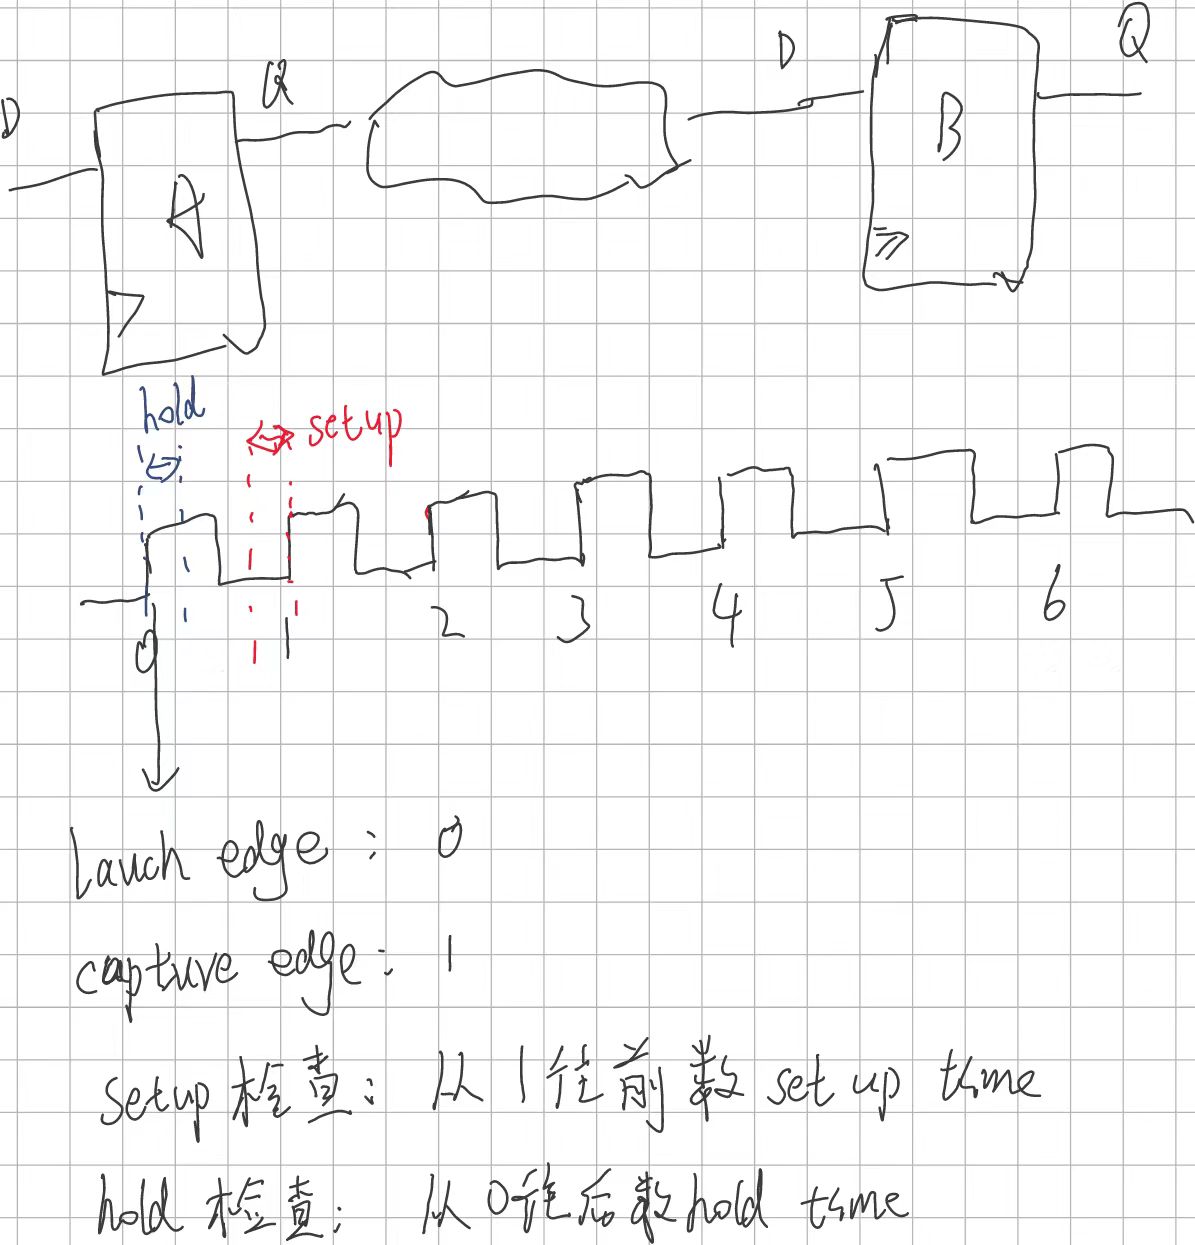 D Q D Q
A B
hold
setup
0 1 2 3 4 5 6
Lauch edge: 0
capture edge: 1
setup 检查: 从 1 往前数 set up time
hold 检查: 从 0 往后数 hold time